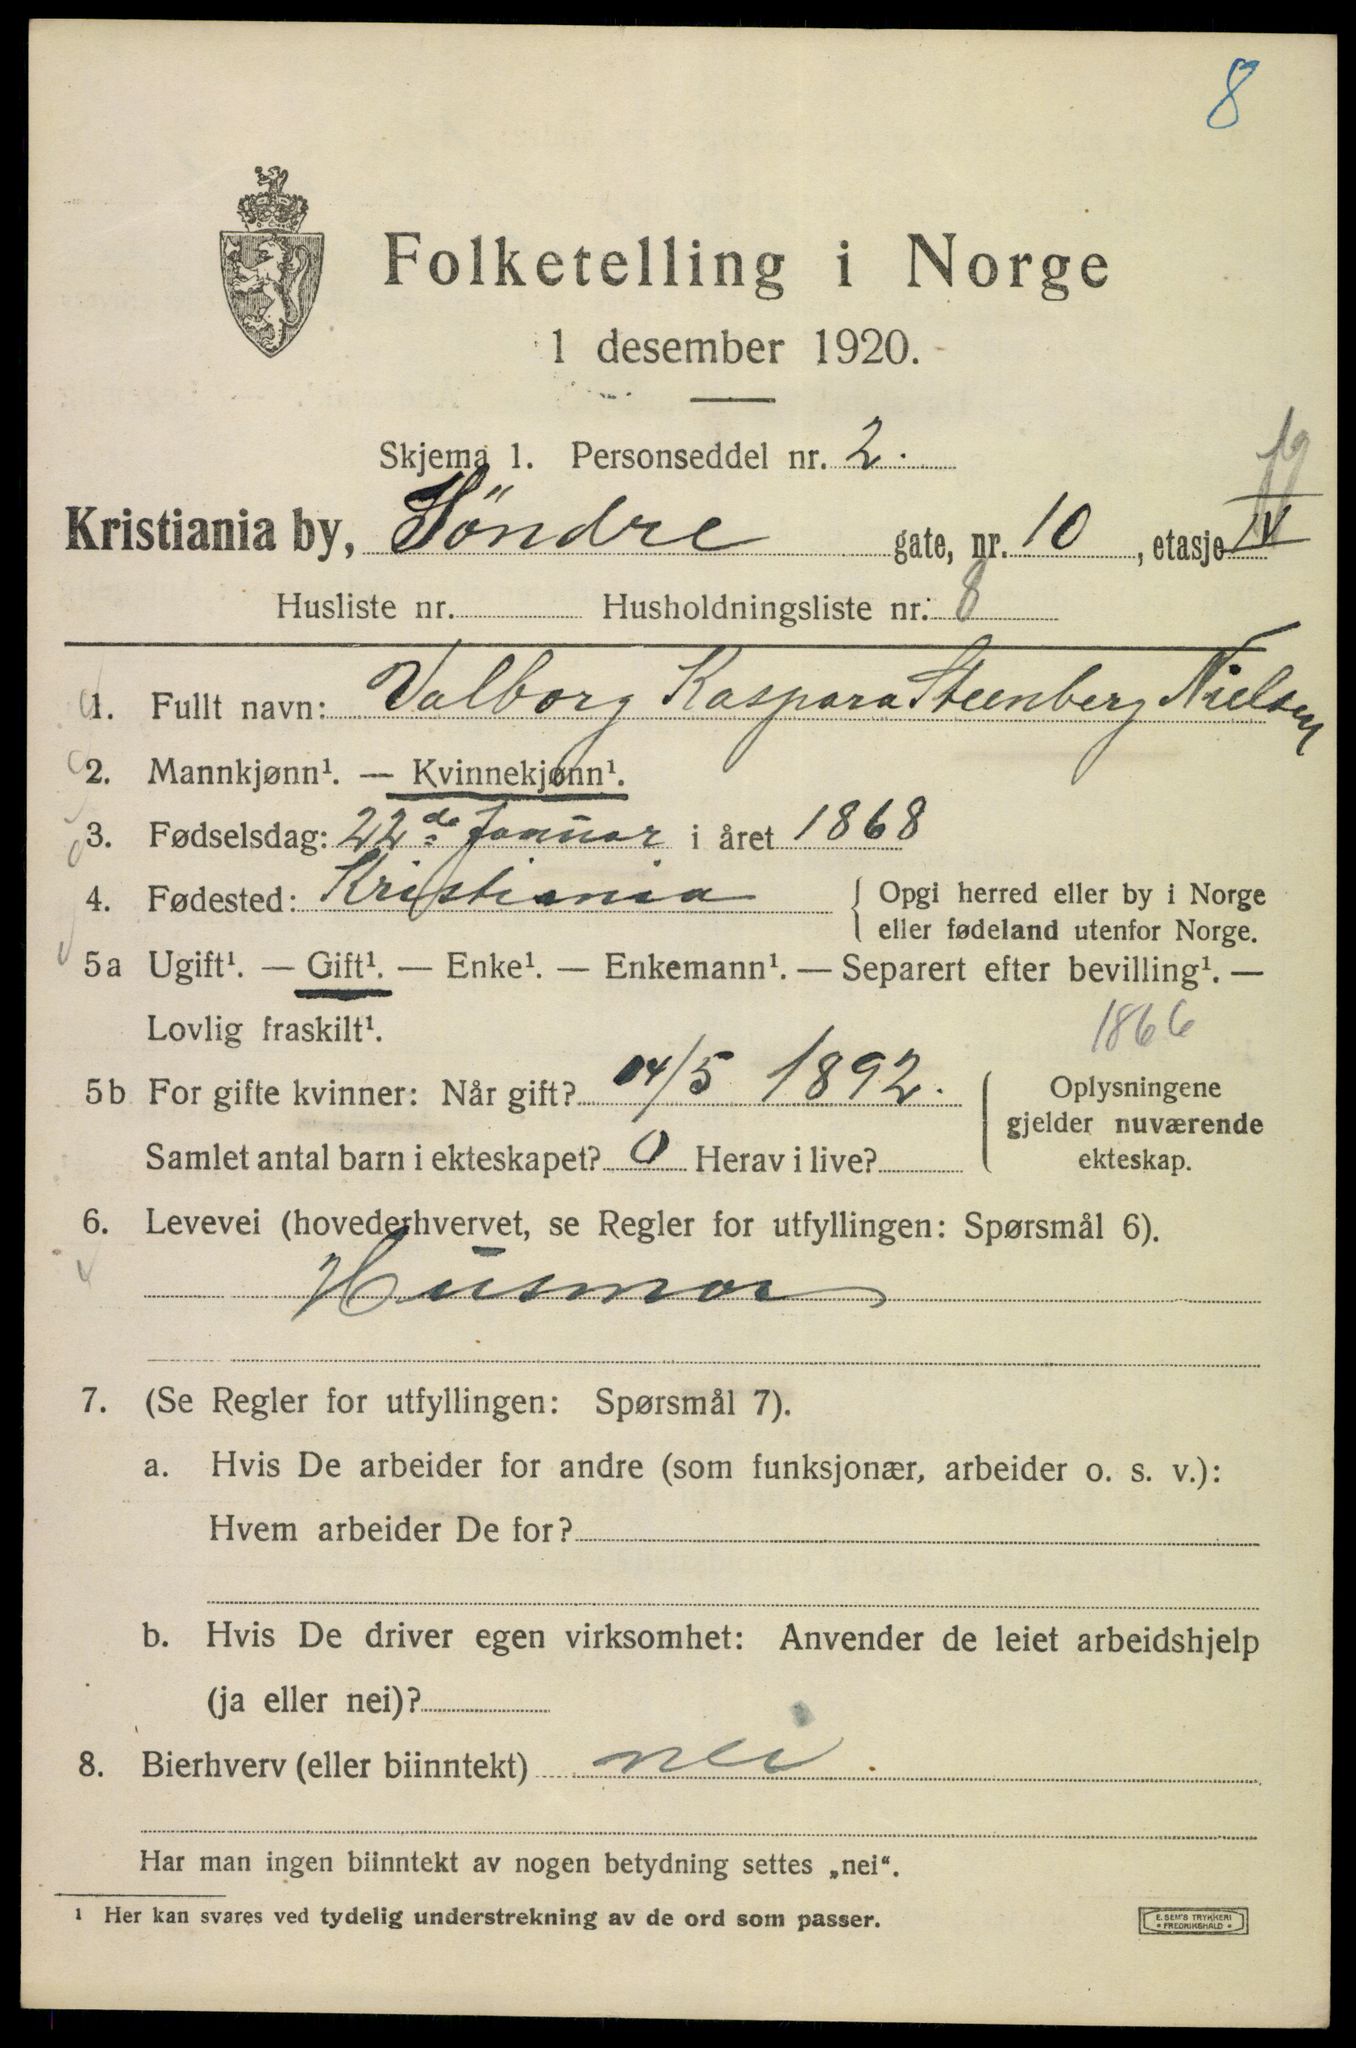 8
Folketelling i Norge
1 desember 1920.
Skjema 1. Personseddel nr. 2.
Kristiania by, Söndre gate, nr. 10, etasje IV
Husliste nr. Husholdningsliste nr. 8
1. Fullt navn: Valborg Kaspara Steenberg Nielsen
2. Mannkjønn¹. — Kvinnekjønn¹.
3. Fødselsdag: 22de Januar i året 1868
4. Fødested: Kristiania { Opgi herred eller by i Norge
eller fødeland utenfor Norge.
5a Ugift¹. — Gift¹. — Enke¹. — Enkemann¹. — Separert efter bevilling¹. —
Lovlig fraskilt¹.
1866
5b For gifte kvinner: Når gift? 04/5 1892. { Oplysningene
gjelder nuværende
Samlet antal barn i ekteskapet? 0 Herav i live? ekteskap.
6. Levevei (hovederhvervet, se Regler for utfyllingen: Spørsmål 6).
Husmor
7. (Se Regler for utfyllingen: Spørsmål 7).
a. Hvis De arbeider for andre (som funksjonær, arbeider o. s. v.):
Hvem arbeider De for?
b. Hvis De driver egen virksomhet: Anvender de leiet arbeidshjelp
(ja eller nei)?
8. Bierhverv (eller biinntekt) nei.
Har man ingen biinntekt av nogen betydning settes „nei“.
¹ Her kan svares ved tydelig understrekning av de ord som passer.
E. SEM'S TRYKKERI
• FREDRIKSHALD •